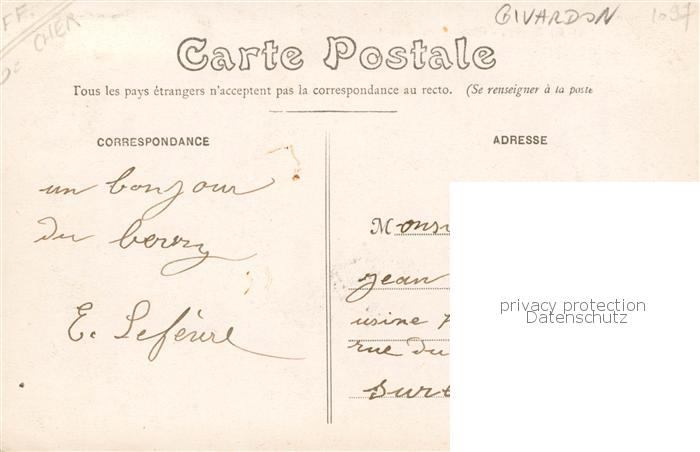 FF.
CHER
GIVARDON
1037
Carte Postale
Tous les pays étrangers n'acceptent pas la correspondance au recto. (Se renseigner à la poste
CORRESPONDANCE
ADRESSE
un bonjour
du berry
E. Lefévre
Mons
jean
usine
rue du
Sur
privacy protection
Datenschutz